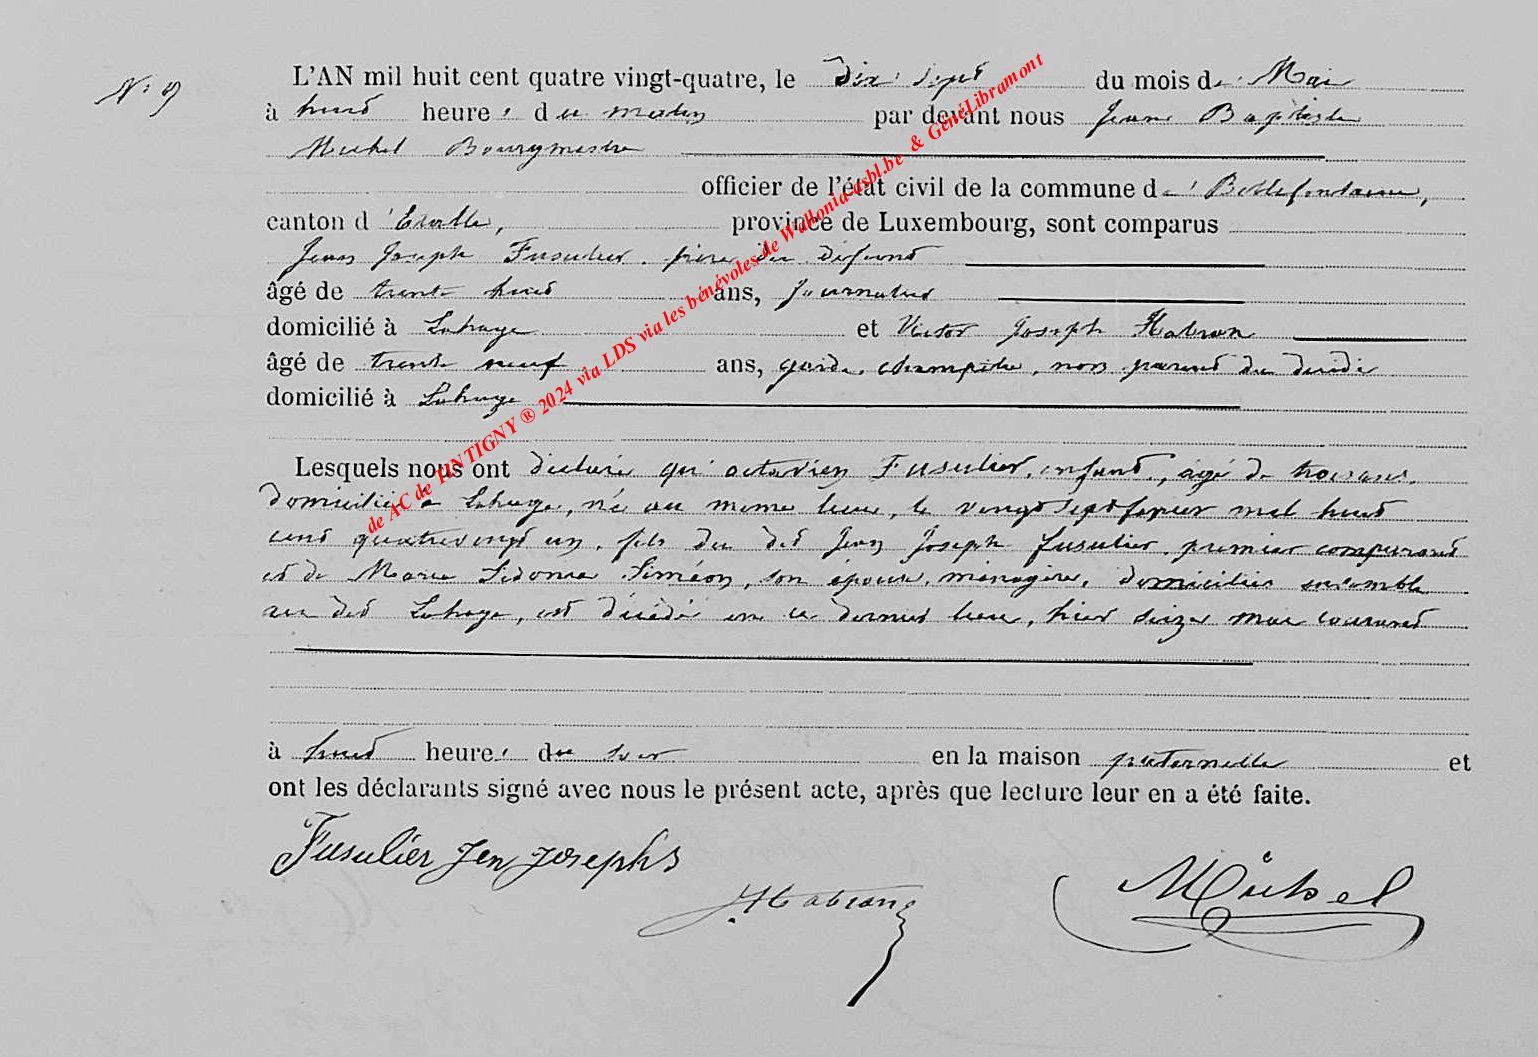 N° 9
L'AN mil huit cent quatre vingt-quatre, le dix sept du mois de Mai
à huit heures du matin par devant nous Jean Baptiste
Michel Bourgmestre
officier de l'état civil de la commune de Bellefontaine,
canton d'Etalle, province de Luxembourg, sont comparus
Jean Joseph Fusulier, père du défunt
âgé de trente huit ans, journalier
domicilié à Lahage et Victor Joseph Habran
âgé de trente neuf ans, garde champêtre, non parent du décédé
domicilié à Lahage
Lesquels nous ont déclaré qu'octavien Fusulier, enfant, âgé de trois ans,
domicilié à Lahage, né au même lieu, le vingt sept février mil huit
cent quatrevingt un, fils du dit Jean Joseph fusulier, premier comparant
et de Marie Sidonie Siméon, son épouse, ménagère, domiciliés ensemble
au dit Lahage, est décédé en ce dernier lieu, hier seize mai courant
à huit heures du soir en la maison paternelle et
ont les déclarants signé avec nous le présent acte, après que lecture leur en a été faite.
Fusulier Jen josephs
J. Habran
Michel
de AC de TINTIGNY ® 2024 via LDS via les bénévoles de Wallonia-asbl.be & GénéLibramont